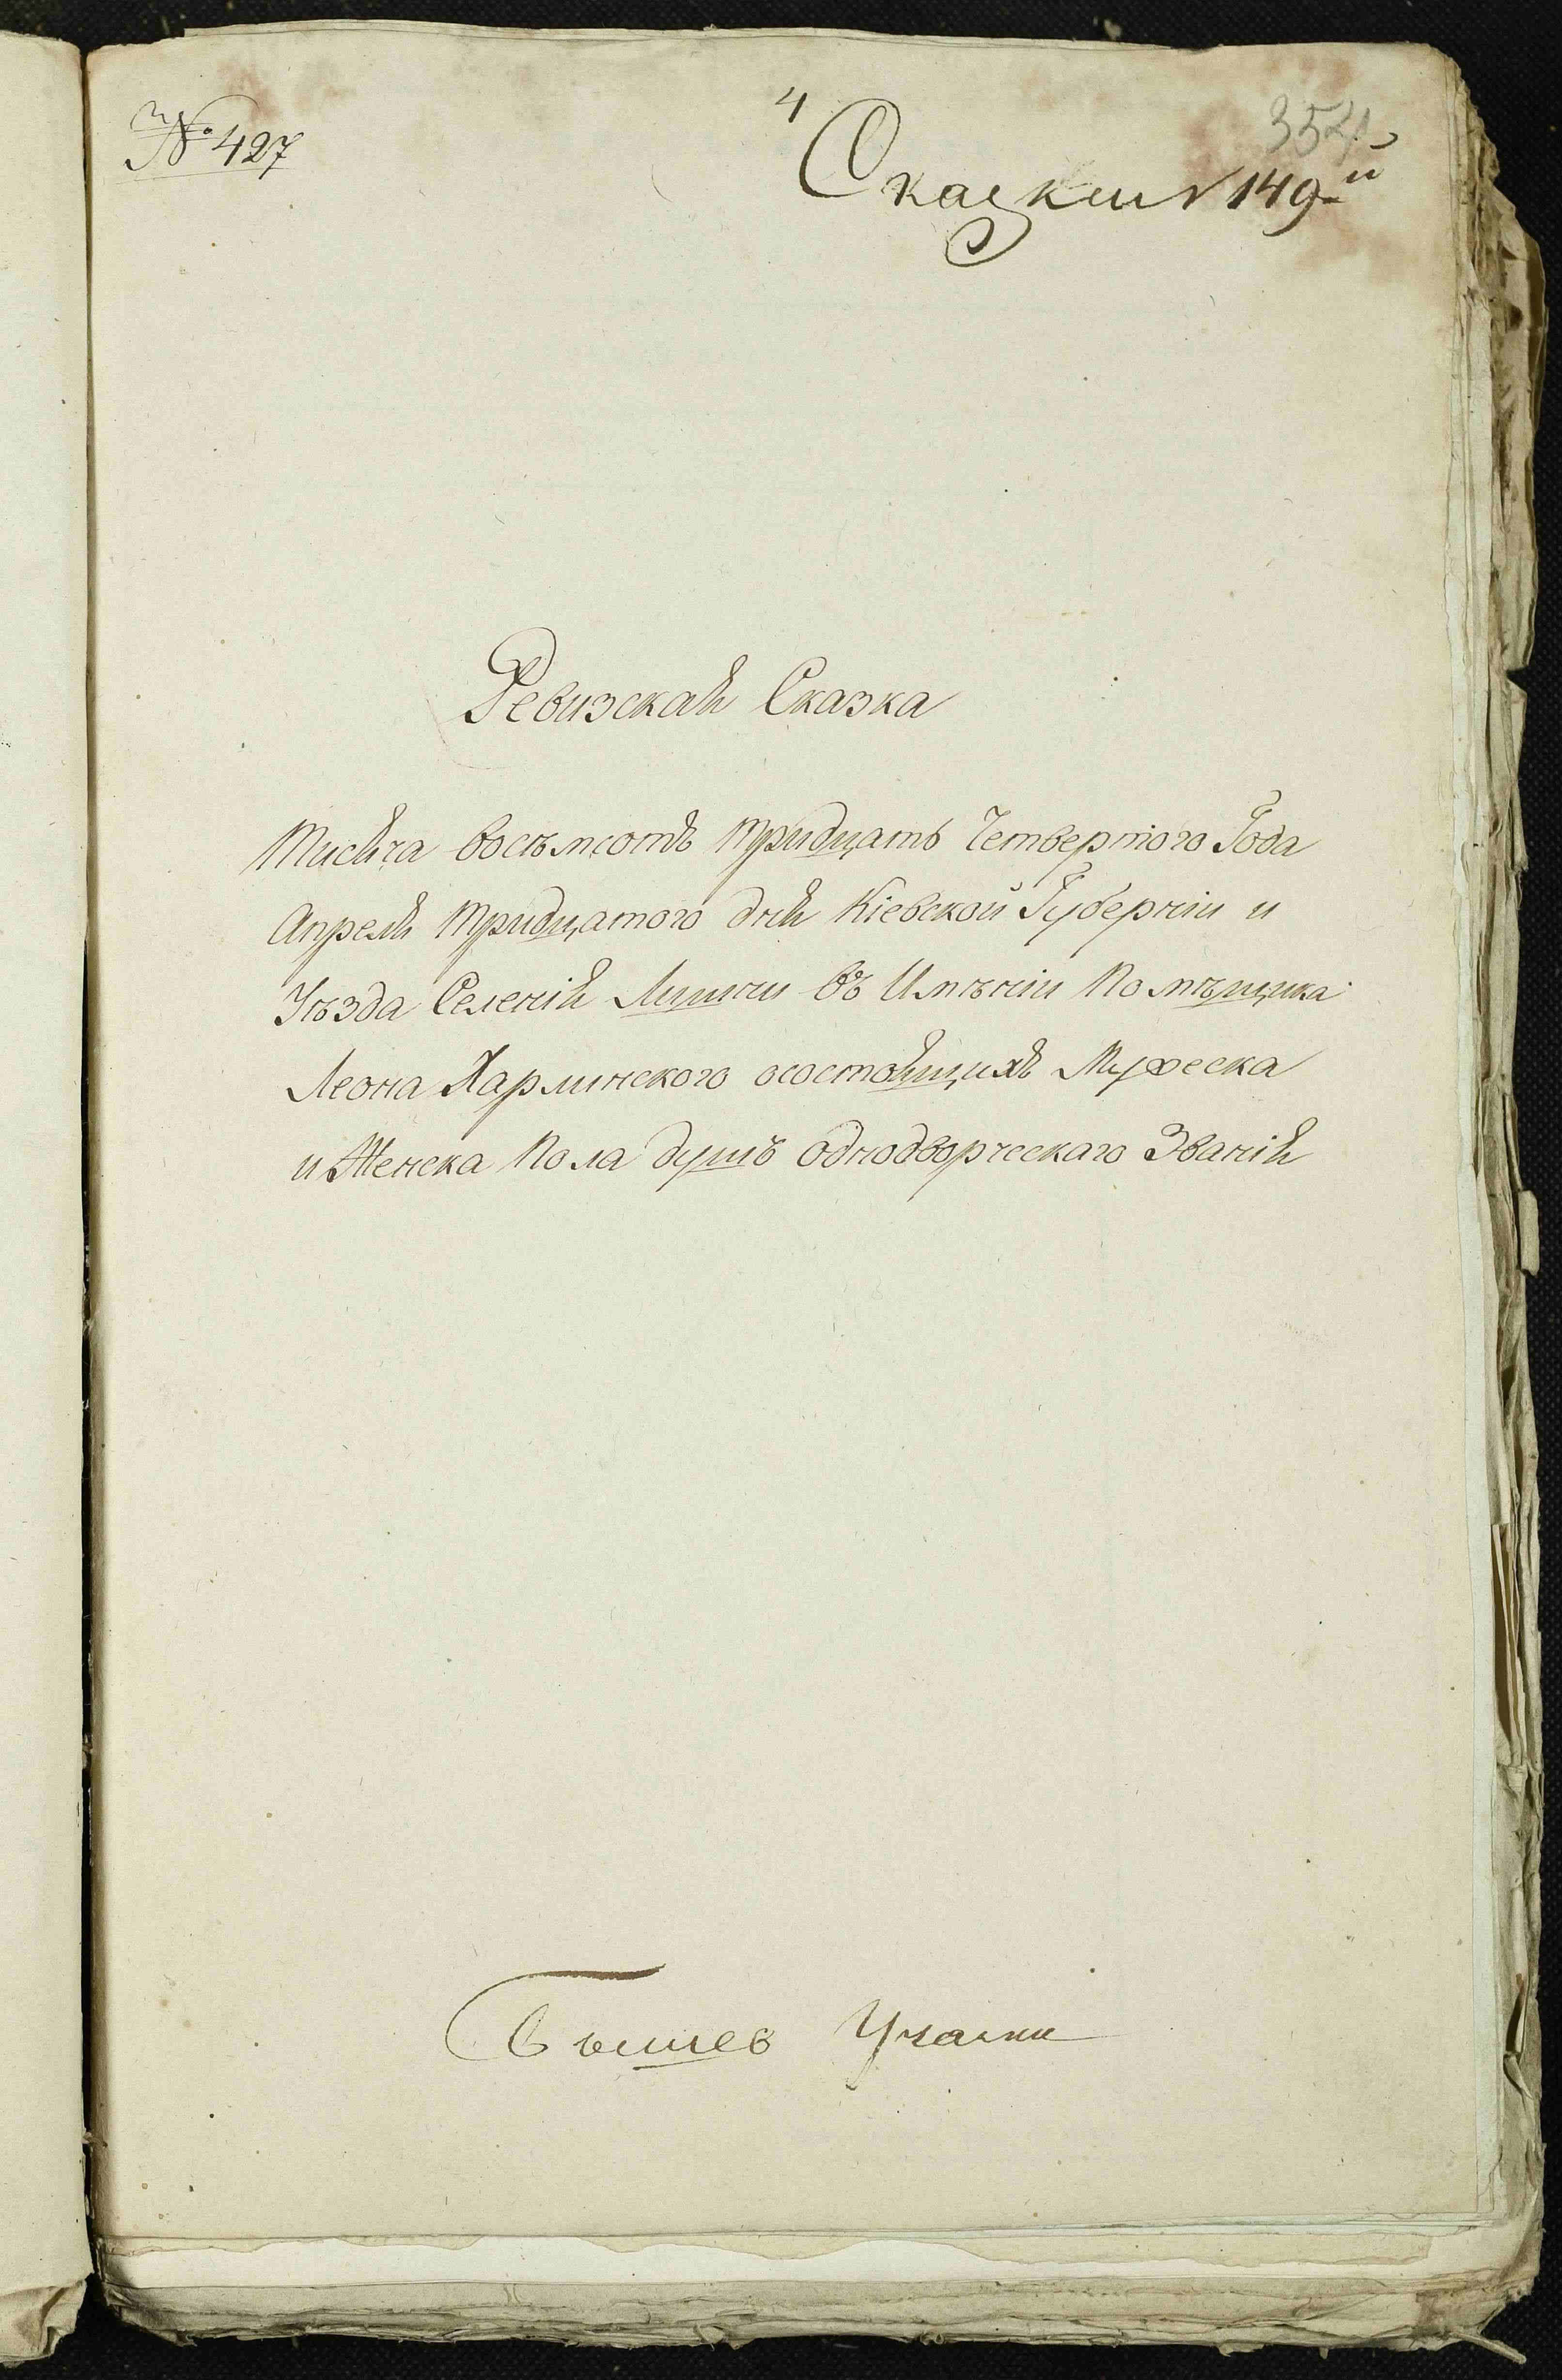 № 427
4
354
Сказки 149й
Ревизская Сказка
Тисяча восъмсотъ тридцать Четвертого Года
Апреля тридцатого дня Кіевской Губерніи и
Уѣзда Селенія Лишни въ Имѣніи Помѣщика
Леона Харлинского осостоящихъ Мужеска
и Женска Пола душъ однодворческаго Званія